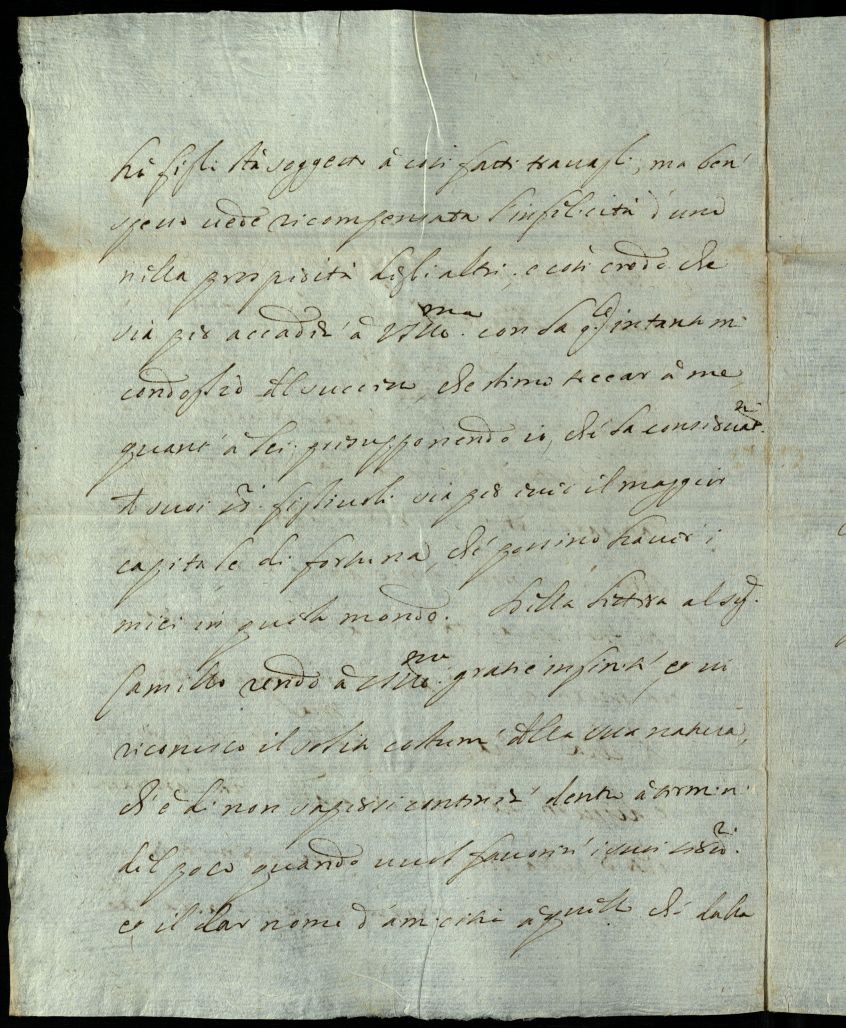 hà figli stà soggetto à così fatti travagli, ma ben
spesso vede ricompensata l'infelicità d'uno
nella prosperità degli altri, e così credo che
sia per accader à VS Ill.ma con la q.le intanto mi
condoglio del successo, che stimo toccar à me,
quant' à lei, presupponendo io, che la conservat.ne
de suoi ss.ri figliuoli sia per esser il maggior
capitale di fortuna, che possino haver i
miei in questo mondo. Della lettera al sig.r
Camillo rendo à VS Ill.ma gratie infinite et vi
riconosco il solito costume della sua natura,
ch' è di non sapersi contener dentro à termini
del poco quando vuol favorire i suoi ser.ri
et il dar nome d'amicitia à quella che dalla